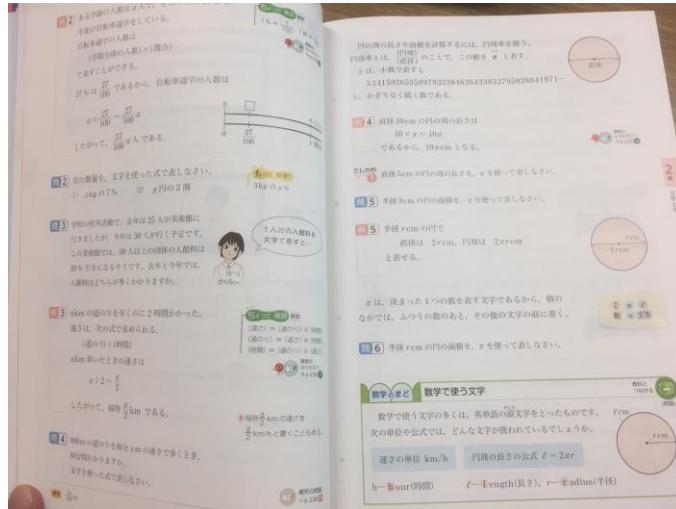 例2 ある学級の人数はa人で、
生徒が自転車通学をしている。
自転車通学の人数は
(学級全体の人数)×(割合)
で表すことができる。
27%は 27/100 であるから、自転車通学の人数は
a× 27/100 = 27/100 a
したがって、 27/100 a人である。
ちょっと確認
0
27/100
問2 次の数量を、文字を使った式で表しなさい。
① xkgの7% ② y円の3割
3kgのx%
問3 学校の校外活動で、去年は25人が美術館に
行きましたが、今年は30人が行く予定です。
この美術館では、30人以上の団体の入館料は
20%引きになるそうです。去年と今年では、
入館料はどちらが多くかかりますか。
1人分の入館料を
文字で表すと…
さくらさん
例3 akmの道のりを歩くのに2時間かかった。
速さは、次の式で求められる。
(道のり)÷(時間)
akm歩いたときの速さは
a÷2= a/2
したがって、毎時 a/2 kmである。
ちょっと確認
(速さ)=(道のり)÷(時間)
(道のり)=(速さ)×(時間)
(時間)=(道のり)÷(速さ)
毎時 a/2 kmの速さを
a/2 km/hと書くこともある。
問4 の道のりを毎分xmの速さで歩くとき、
何分間かかりますか。
文字を使った式で表しなさい。
円の周の長さや面積を計算するには、円周率を使う。
円周率とは、(円周)/(直径) のことで、この値をπと表す。
πは、小数で表すと
3.1415926535897932384626433832795028841971…
と、かぎりなく続く数である。
直径
例4 直径10cmの円の周の長さは
10×π=10π
であるから、10πcmとなる。
たしかめ1 直径5cmの円の周の長さを、πを使って表しなさい。
問5 半径3cmの円の面積を、πを使って表しなさい。
例5 半径rcmの円で
直径は 2rcm、円周は 2πrcm
と表せる。
rcm
πは、決まった1つの数を表す文字であるから、積の
なかでは、ふつうの数のあと、その他の文字の前に書く。
2 π r
数 π 文字
問6 半径rcmの円の面積を、πを使って表しなさい。
2章
数学のまど 数学で使う文字
数学で使う文字の多くは、英単語の頭文字をとったものです。
次の単位や公式では、どんな文字が使われているでしょうか。
速さの単位 km/h 円周の長さの公式 ℓ=2πr
h…hour(時間) ℓ…length(長さ)、r…radius(半径)
ℓcm
rcm